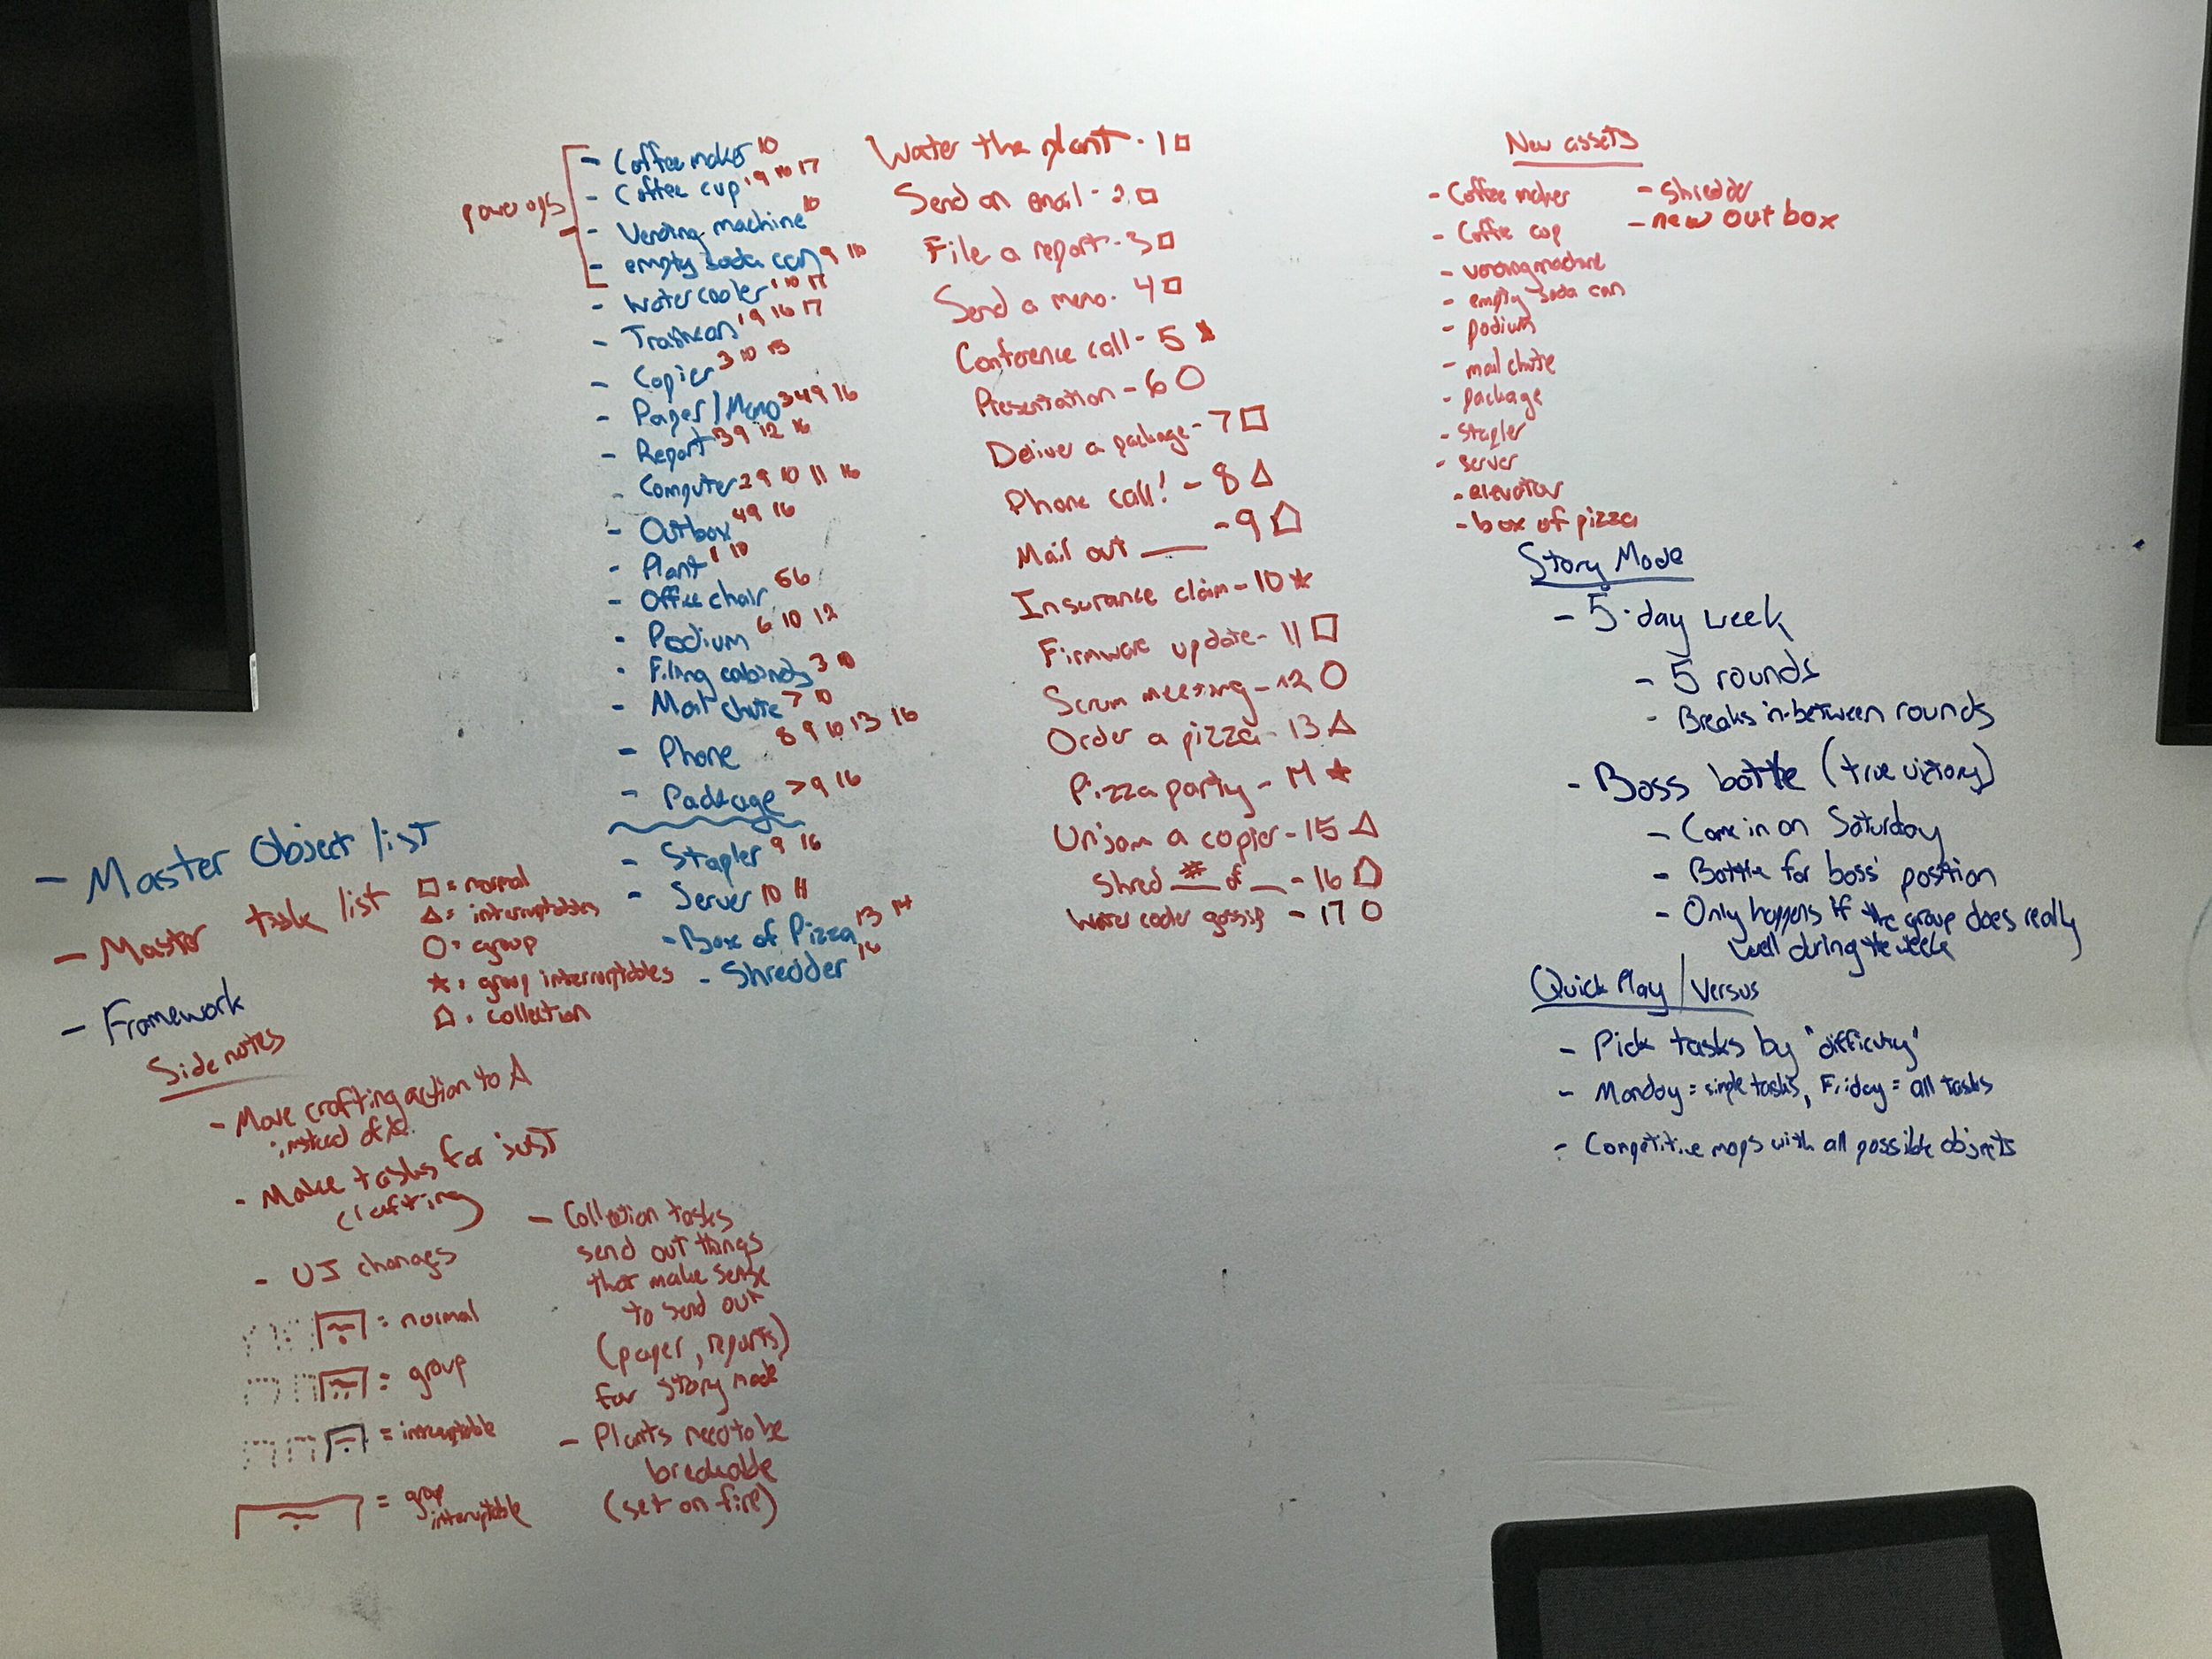 power ups
- Coffee maker 10
- Coffee cup 1 9 10 17
- Vending machine 10
- empty soda can 9 10
- Water cooler 1 10 17
- Trashcan 1 9 16 17
- Copier 3 10 15
- Paper/Memo 3 4 9 16
- Report 3 9 12 16
- Computer 2 9 10 11 16
- Outbox 4 9 16
- Plant 1 10
- Office chair 5 6
- Podium 6 10 12
- Filing cabinets 3 10
- Mail chute 7 10
- Phone 8 9 10 13 16
- Package 7 9 16
- Stapler 9 16
- Server 10 11
- Box of Pizza 13 14
- Shredder 16
Water the plant - 1 □
Send an email - 2 □
File a report - 3 □
Send a memo - 4 □
Conference call - 5 ★
Presentation - 6 ○
Deliver a package - 7 □
Phone call! - 8 △
Mail out ___ - 9 ⌂
Insurance claim - 10 ★
Firmware update - 11 □
Scrum meeting - 12 ○
Order a pizza - 13 △
Pizza party - 14 ★
Unjam a copier - 15 △
Shred # of __ - 16 ⌂
Water cooler gossip - 17 ○
New assets
- Coffee maker
- Coffee cup
- vending machine
- empty soda can
- podium
- mail chute
- package
- stapler
- server
- elevator
- box of pizza
- shredder
- new out box
Story Mode
- 5-day week
- 5 rounds
- Breaks in-between rounds
- Boss battle (true victory)
- Come in on Saturday
- Battle for boss' position
- Only happens if the group does really
well during the week
Quick Play/Versus
- Pick tasks by "difficulty"
- Monday = simple tasks, Friday = all tasks
- Competitive maps with all possible objects
- Master Object list
- Master task list
- Framework
□ = normal
△ = interruptables
○ = group
★ = group interruptables
⌂ = collection
Side notes
- Move crafting action to A
instead of X
- Make tasks for just
crafting
- UI changes
= normal
= group
= interruptable
= group
interruptable
- Collection tasks
send out things
that make sense
to send out
(paper, reports)
for story mode
- Plants need to be
breakable
(set on fire)